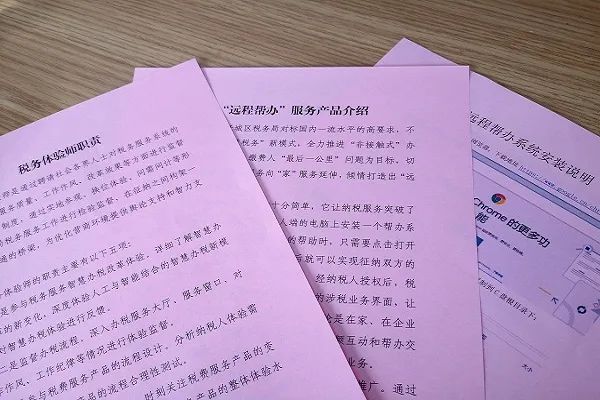 税务体验师职责
师是通过聘请社会各界人士对税务服务系统的
服务质量、工作作风、改革效果等方面进行监督
制度，通过实地参观、换位体验、问需问计等形
税务服务工作进行检验监督，在征纳之间构筑一
通的桥梁，为优化营商环境提供舆论支持和智力支
体验师的职责主要有以下五项：
是参与税务服务智慧办税改革体验，详细了解智慧办
的新变化，深度体验人工与智能结合的智慧办税新模
对智慧办税体验进行反馈。
二是监督办税流程，深入办税大厅、服务窗口，对
作作风、工作纪律等情况进行体验监督。
参与税费服务产品的流程设计，分析纳税人体验需
产品的流程合理性测试。
时刻关注税费服务产品的变
产品的整体体验水
“远程帮办”服务产品介绍
城区税务局对标国内一流水平的高要求，不
税务”新模式，全力推进“非接触式”办
缴费人“最后一公里”问题为目标，切
务向“家”服务延伸，倾情打造出“远
十分简单，它让纳税服务突破了
人端的电脑上安装一个帮办系
的帮助时，只需要点击打开
后就可以实现征纳双方的
经纳税人授权后，税
的涉税业务界面，让
论是在家、在企业
要互动和帮办交
业务。
推广。通过
远程帮办系统安装说明
浏览器，下载地址
https://www.google.cn/ch
Chrome 的更多功
能
到 C 盘根目录下：